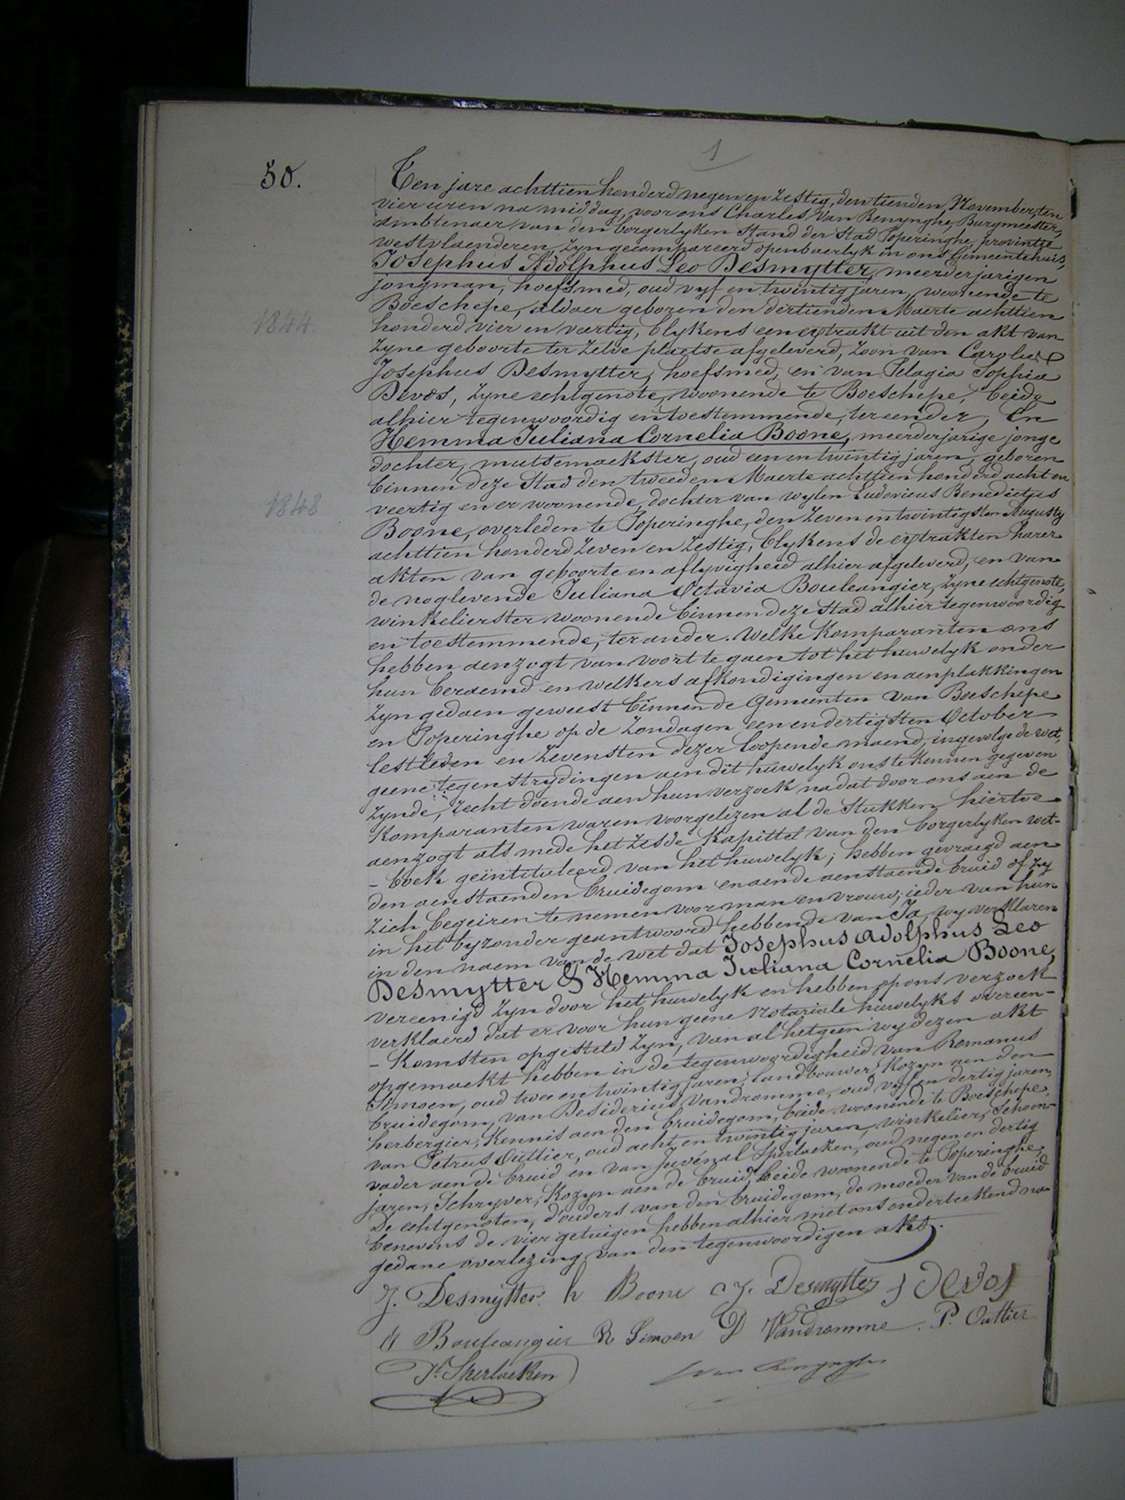 1
50.
Ten jare achttien honderd negen en zestig, den tienden November, ten
vier uren na middag, voor ons Charles Van Renynghe, Burgmeester,
ambtenaer van den borgerlyken Stand der Stad Poperinghe, provintie
westvlaenderen, zyn gecompareerd openbaerlyk in ons Gemeentehuis,
Josephus Adolphus Leo Desmytter, meerderjarigen
jongman, hoefsmed, oud vyf en twintig jaren, woonende te
Boeschepe, aldaer geboren den dertienden Maerte achttien
1844.
honderd vier en veertig, blykens een extrakt uit den akt van
zyne geboorte ter zelve plaetse afgeleverd, zoon van Carolus
Josephus Desmytter, hoefsmed, en van Pelagia Sophia
Devos, zyne echtgenote, woonende te Boeschepe, beide
alhier tegenwoordig en toestemmende, ter eender, En
Hemma Juliana Cornelia Boone, meerderjarige jonge
dochter, mutsemaekster, oud een en twintig jaren, geboren
binnen deze Stad den tweeden Maerte achttien honderd acht en
1848
veertig en er woonende, dochter van wylen Ludovicus Benedictus
Boone, overleden te Poperinghe, den zeven en twintigsten Augusty
achttien honderd zeven en zestig, blykens de extrakten harer
akten van geboorte en aflyvigheid alhier afgeleverd, en van
de noglevende Juliana Octavia Bouleangier, zyne echtgenote,
winkelierster woonende binnen deze Stad alhier tegenwoordig
en toestemmende, ter ander. Welke komparanten ons
hebben aenzogt van voort te gaen tot het huwelyk onder
hun beraemd en welkers afkondigingen en aenplakkingen
zyn gedaen geweest binnen de Gemeenten van Boeschepe
en Poperinghe op de zondagen een en dertigsten October
lestleden en zevensten dezer loopende maend, ingevolge de wet,
geene tegenstrydingen aen dit huwelyk ons te kennen gegeven
zynde, recht doende aen hun verzoek na dat door ons aen de
komparanten waren voorgelezen al de Stukken hiertoe
aenzogt als mede het zesde Kapittel van den borgerlyken wet-
- boek geïntituleerd, van het huwelyk; hebben gevraegd aen
den aenstaenden bruidegom en aende aenstaende bruid of zy
zich begeiren te nemen voor man en vrouw, ieder van hun
in het byzonder geantwoord hebbende van Ja, wy verklaren
in den naem van de wet dat Josephus Adolphus Leo
Desmytter & Hemma Juliana Cornelia Boone,
vereenigd zyn door het huwelyk en hebben op ons verzoek
verklaerd dat er voor hun geene Notariale huwelyks overeen-
- komsten opgesteld zyn, van al het geen wy dezen akt
opgemaekt hebben in de tegenwoordigheid van Romanus
Simoen, oud twee en twintig jaren, landbouwer, kozyn aen den
bruidegom, van Desiderius Vandromme, oud vyf en dertig jaren,
herbergier, kennis aen den bruidegom, beide woonende te Boeschepe,
van Petrus Outtier, oud acht en twintig jaren, winkelier, schoon-
vader aen de bruid en van Juvenal Sperlaeken, oud negen en dertig
jaren, Schryver, kozyn aen de bruid, beide woonende te Poperinghe,
De echtgenoten, d'ouders van den bruidegom, de moeder van de bruid
benevens de vier getuigen hebben alhier met ons onderteekend na
gedane overlezing van den tegenwoordigen akt.
J. Desmytter h Boone C J. Desmytter S devos
J Bouleangier R Simoen D Vandromme. P. Outtier
Jl Sperlaeken